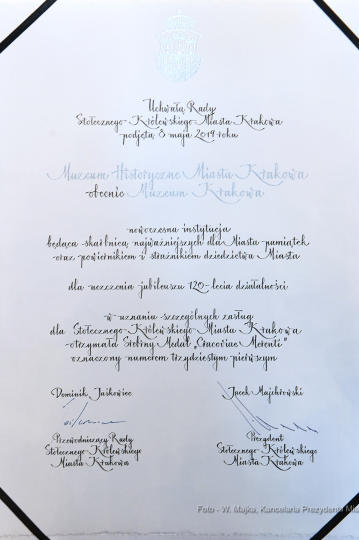 Uchwałą Rady
Stołecznego Królewskiego Miasta Krakowa
podjętą 8 maja 2019 roku
Muzeum Historyczne Miasta Krakowa
obecnie Muzeum Krakowa
nowoczesna instytucja
będąca skarbnicą najważniejszych dla Miasta pamiątek
oraz powiernikiem i strażnikiem dziedzictwa Miasta
dla uczczenia jubileuszu 120-lecia działalności
w uznaniu szczególnych zasług
dla Stołecznego Królewskiego Miasta Krakowa
otrzymała Srebrny Medal „Cracoviae Merenti”
oznaczony numerem trzydziestym pierwszym
Dominik Jaśkowiec
Jacek Majchrowski
Przewodniczący Rady
Stołecznego Królewskiego
Miasta Krakowa
Prezydent
Stołecznego Królewskiego
Miasta Krakowa
Foto - W. Majka, Kancelaria Prezydenta Mia